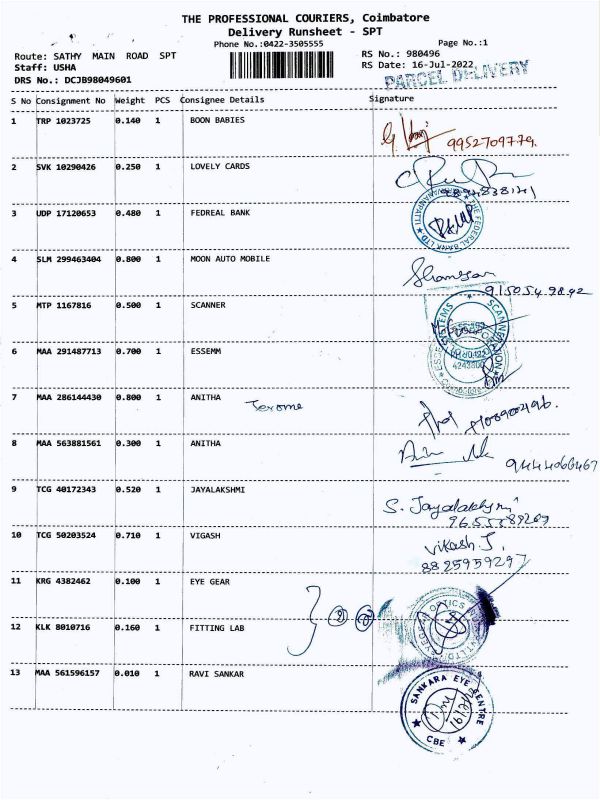 THE PROFESSIONAL COURIERS, Coimbatore
Delivery Runsheet - SPT
Phone No.:0422-3505555 Page No.:1
Route: SATHY MAIN ROAD SPT RS No.: 980496
Staff: USHA RS Date: 16-Jul-2022
DRS No.: DCJB98049601 PARCEL DELIVERY
S No Consignment No Weight PCS Consignee Details Signature
1 TRP 1023725 0.140 1 BOON BABIES
9952709779.
2 SVK 10290426 0.250 1 LOVELY CARDS
3 UDP 17120653 0.480 1 FEDREAL BANK
THE FEDERAL BANK LTD
4 SLM 299463404 0.800 1 MOON AUTO MOBILE
5 MTP 1167816 0.500 1 SCANNER
6 MAA 291487713 0.700 1 ESSEMM
7 MAA 286144430 0.800 1 ANITHA Jerome
8 MAA 563881561 0.300 1 ANITHA
9444066467
9 TCG 40172343 0.520 1 JAYALAKSHMI
S. Jayalakshmi
10 TCG 50203524 0.710 1 VIGASH
Vikash.J,
8825959297
11 KRG 4382462 0.100 1 EYE GEAR
12 KLK 8010716 0.160 1 FITTING LAB
13 MAA 561596157 0.010 1 RAVI SANKAR
SANKARA EYE CENTRE
CBE